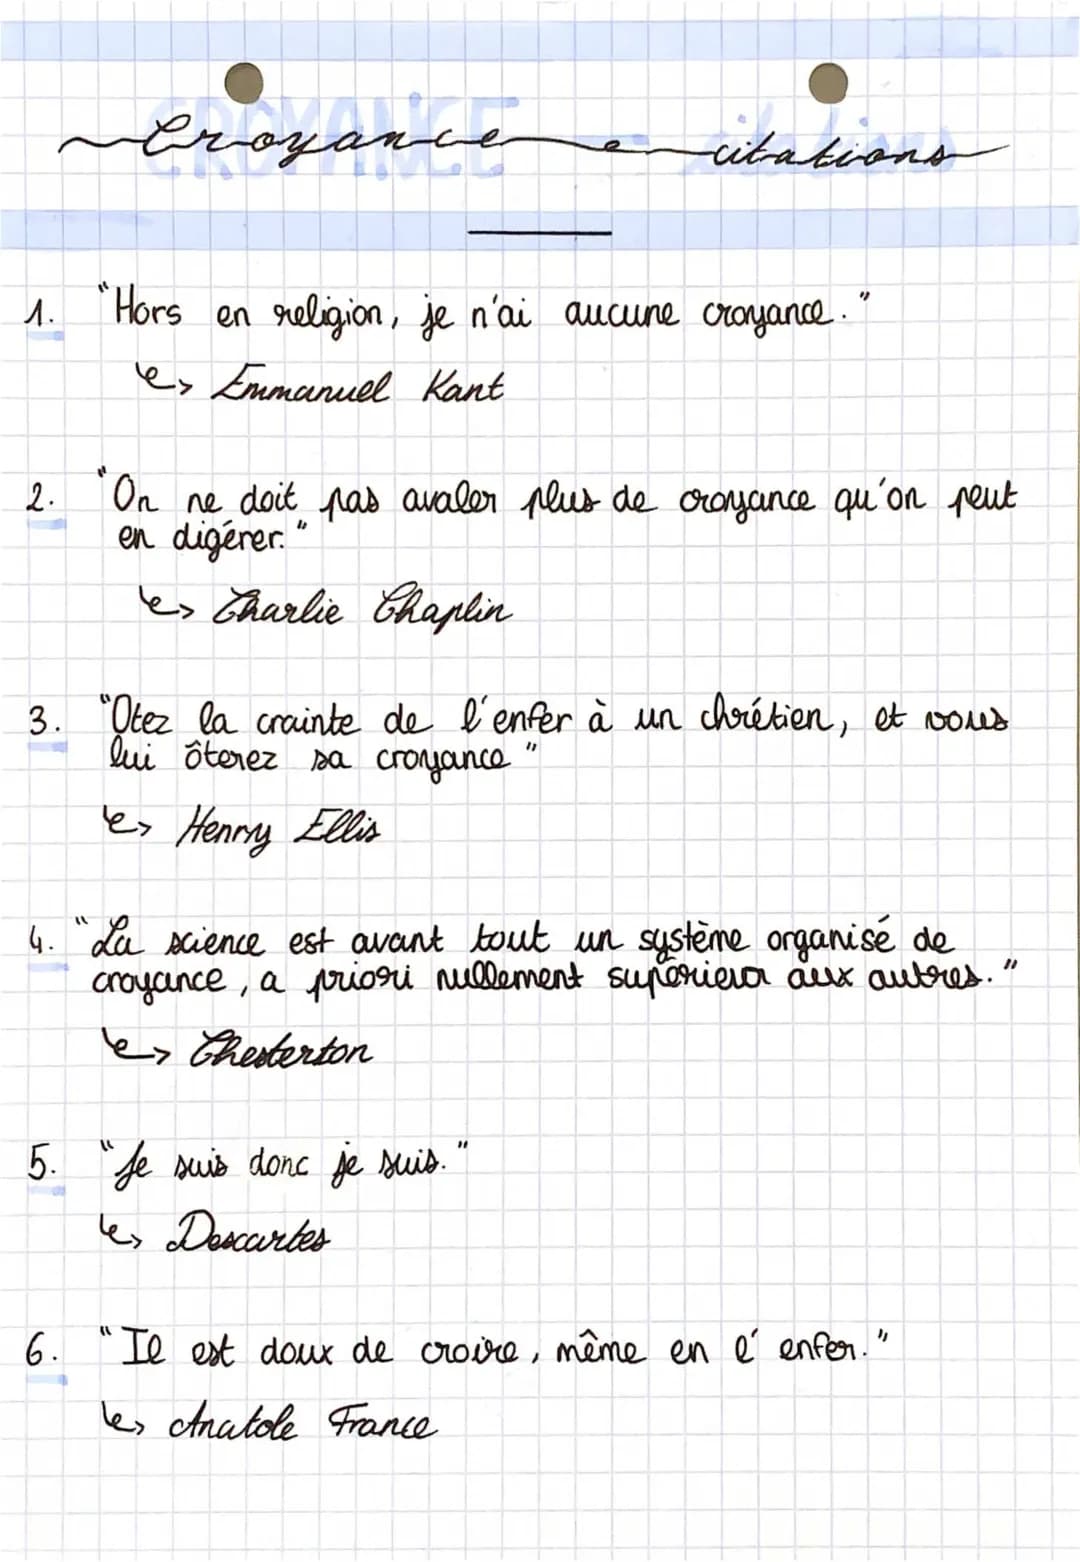 CROYANCE citations
Croyance citations
1. "Hors en religion, je n'ai aucune croyance."
↳ Emmanuel Kant
2. "On ne doit pas avaler plus de croyance qu'on peut
en digérer."
↳ Charlie Chaplin
3. "Otez la crainte de l'enfer à un chrétien, et vous
lui ôterez sa croyance"
↳ Henry Ellis
4. "La science est avant tout un système organisé de
croyance, a priori nullement supérieur aux autres."
↳ Chesterton
5. "Je suis donc je suis."
↳ Descartes
6. "Il est doux de croire, même en l'enfer."
↳ Anatole France